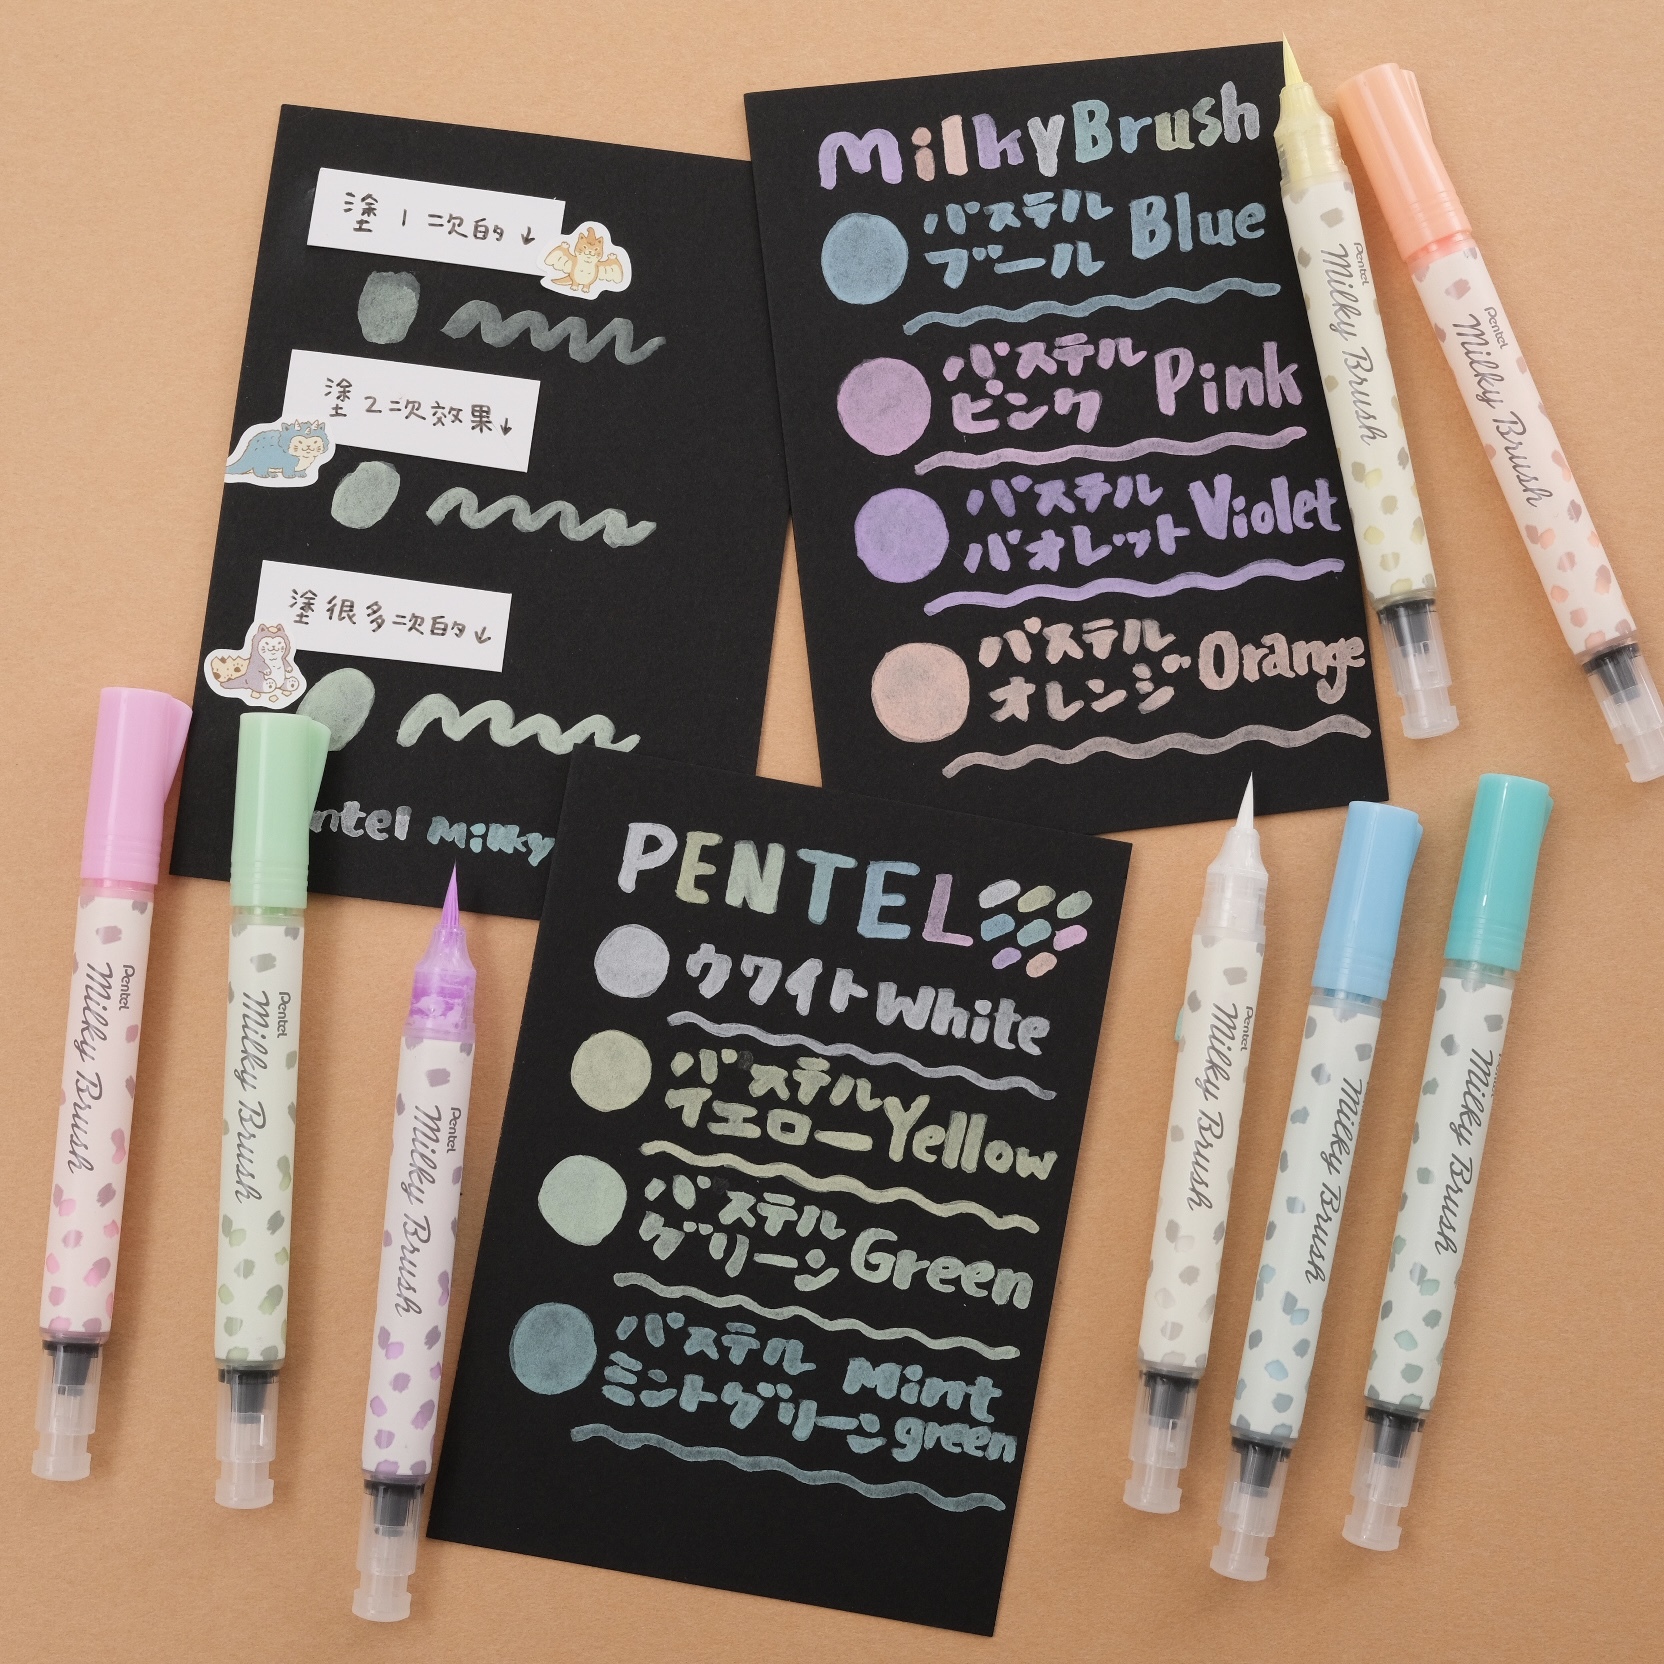 塗1次的↓
塗2次效果↓
塗很多次的↓
ntel Milky
MilkyBrush
パステル
ブール Blue
パステル
ピンク Pink
パステル
バオレット Violet
パステル
オレンジ Orange
PENTEL
ウワイト White
パステル
イエロー Yellow
パステル
グリーン Green
パステル Mint
ミントグリーン green
Pentel
Milky Brush
Pentel
Milky Brush
Pentel
Milky Brush
Pentel
Milky Brush
Pentel
Milky Brush
Pentel
Milky Brush
Milky Brush
Milky Brush